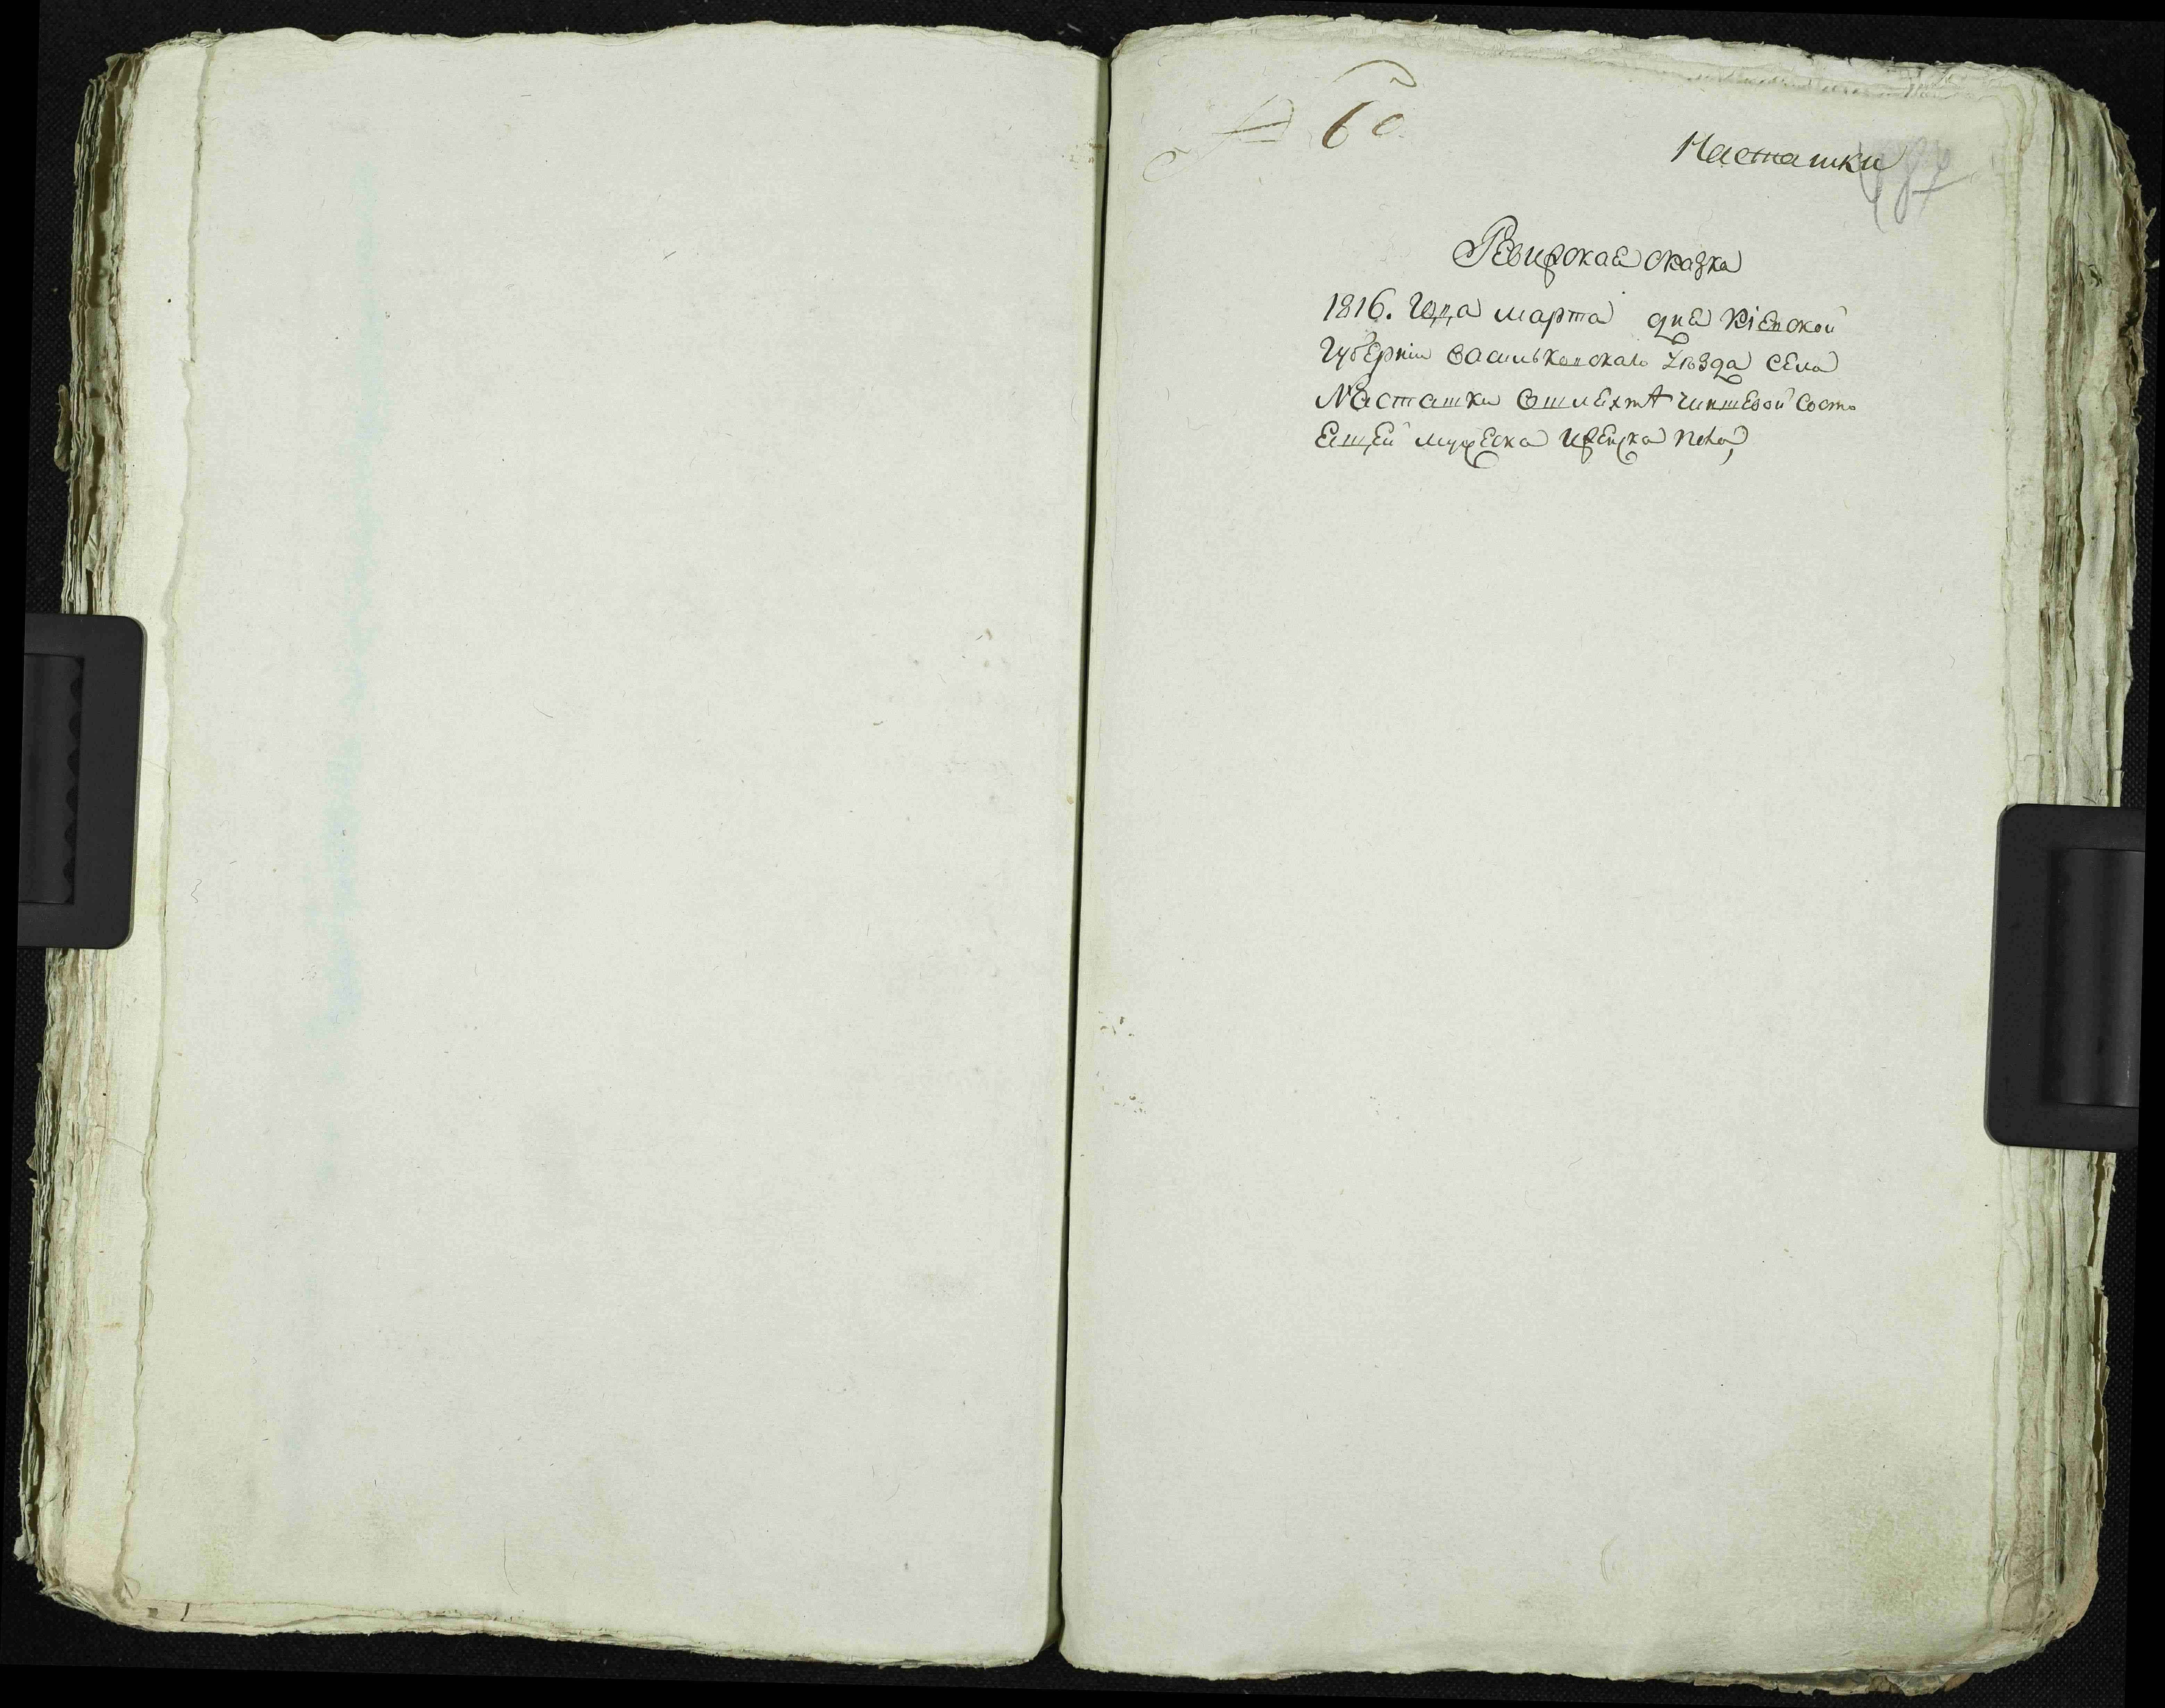 № 60.
Насташки
487
Ревизская сказка
1816. Года марта дня Кіевской
Губерніи Васильковскаго Уѣзда Села
Насташки Ошляхтѣ чиншевой Состо
Ещей мужеска Иженска пола,